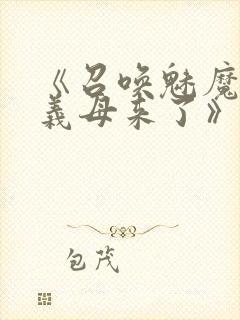 《召唤魅魔
义母来了》
包茂